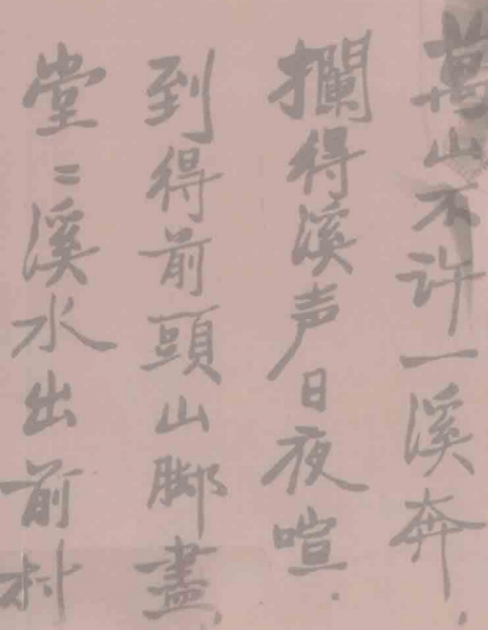 萬山不许一溪奔.
攔得溪声日夜喧.
到得前頭山脚盡.
堂〻溪水出前村